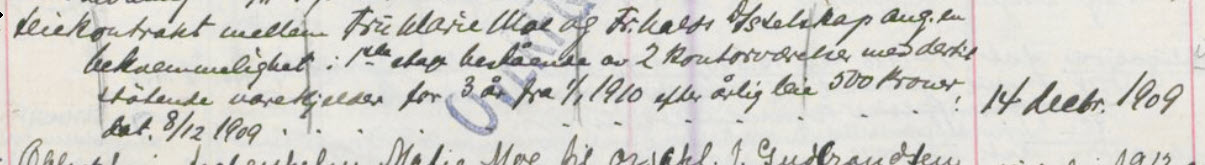 Leiekontrakt mellem Fru Marie Moe og Fr. Halds D/sselskap ang. en
bekvemmelighet i 1ste etage bestående av 2 kontorværelser med dertil
stötende varekjelder for 3 år fra 1/1 1910 efter årlig leie 500 kroner,
dat. 8/12 1909 . . . . . . . . . . . 14 decbr. 1909
Malie Moe til J. Gudbrandsen 1912